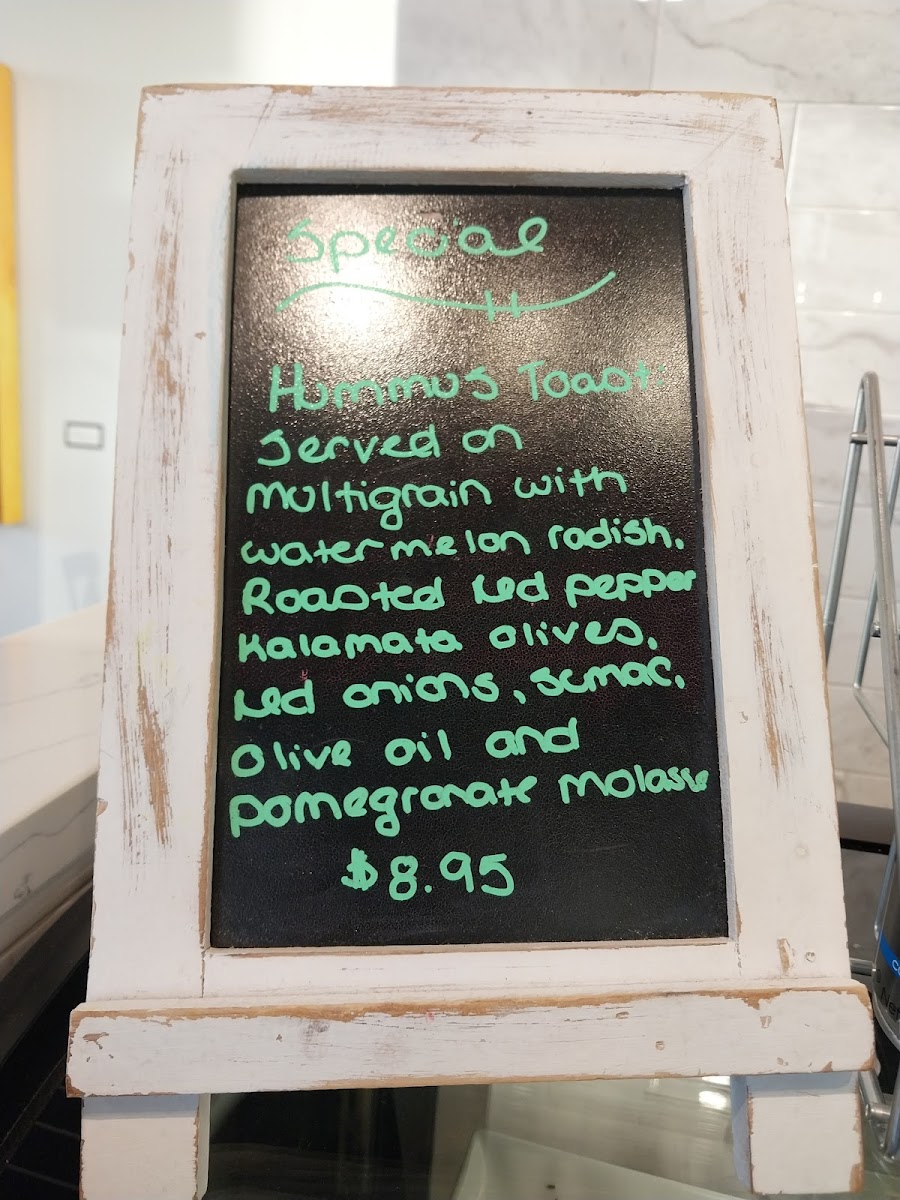 Special
Hummus Toast:
Served on
multigrain with
watermelon radish,
Roasted Red pepper
Kalamata olives,
Red onions, sumac,
Olive oil and
pomegranate molasse
$8.95